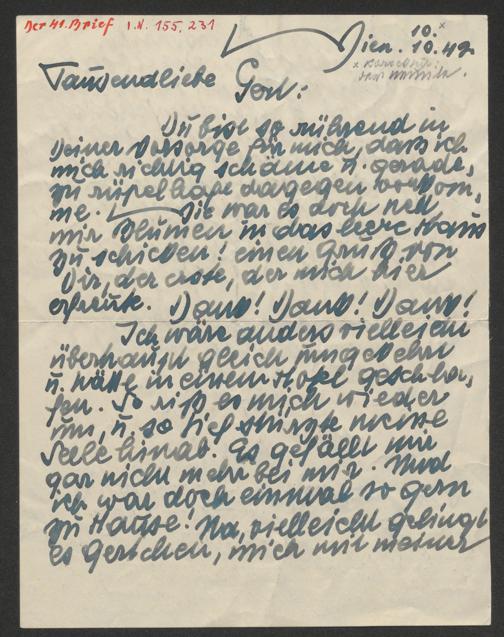 Der 41. Brief I.N. 155.231
10.
Wien. 10.49
Tausendliebe Gerl:
Du bist so rührend in
Deiner Vorsorge für mich, dass ich
mich richtig schäme u. gerade,
zu rüpelhaft dagegen vorkom,
me. Wie war es doch nett
mir Blumen in das leere Haus
zu schicken! einen Gruß von
Dir, der erste, der mich hier
erfreute. Dank! Dank! Dank!
Ich wäre anders vielleicht
überhaupt gleich umgekehrt
u. hätte in einem Hotel geschla,
fen. So riß es mich wieder
um, u. so tief stürzte meine
Seele hinab. Es gefällt mir
gar nicht mehr bei mir. Und
ich war doch einmal so gern
zu Hause! Na, vielleicht gelingt
es Gretchen, mich mit meiner